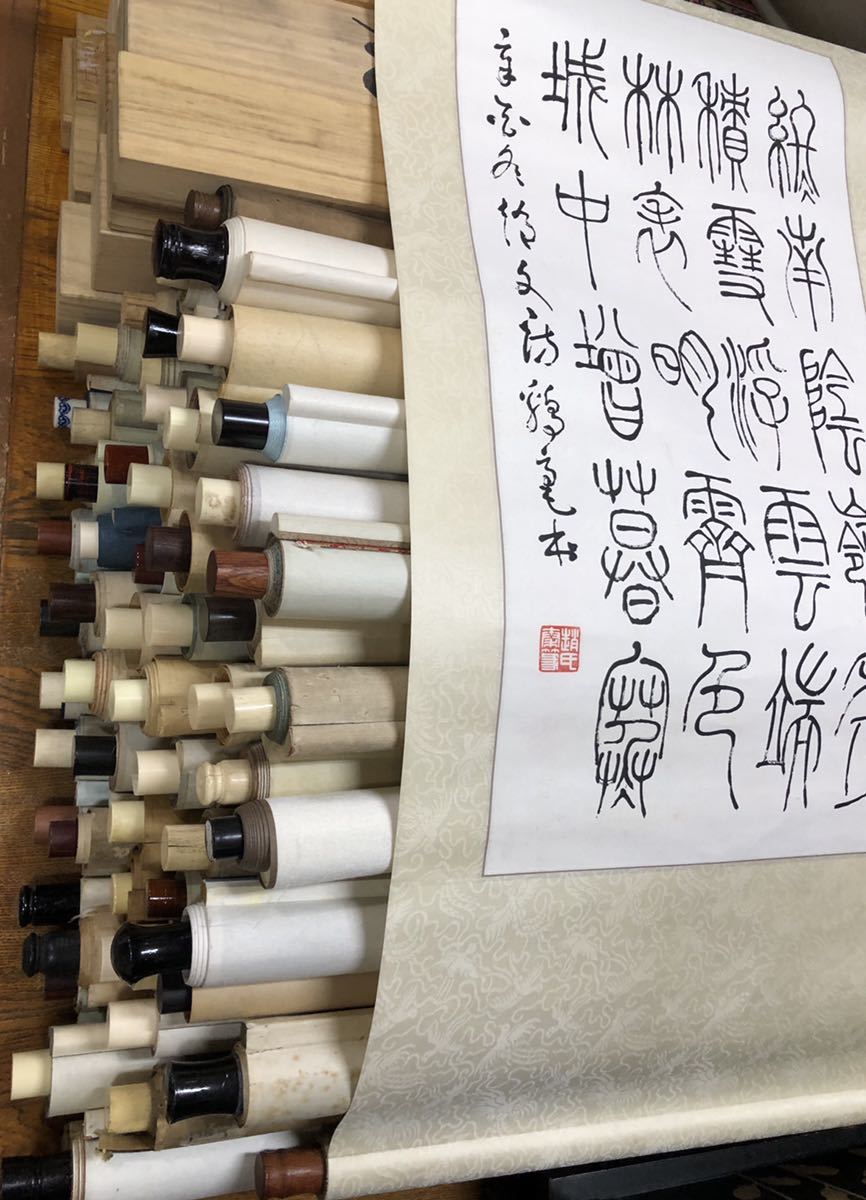 終南陰嶺秀
積雪浮雲端
林表明霽色
城中增暮寒
辛酉冬趙文訪鶴書
趙氏